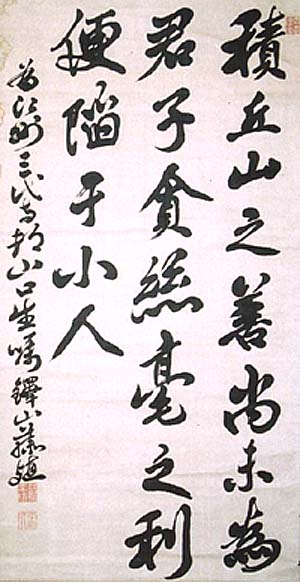 積丘山之善尚未為
君子貪絲毫之利
便陷于小人
為江州三代山口生嘱鐸山